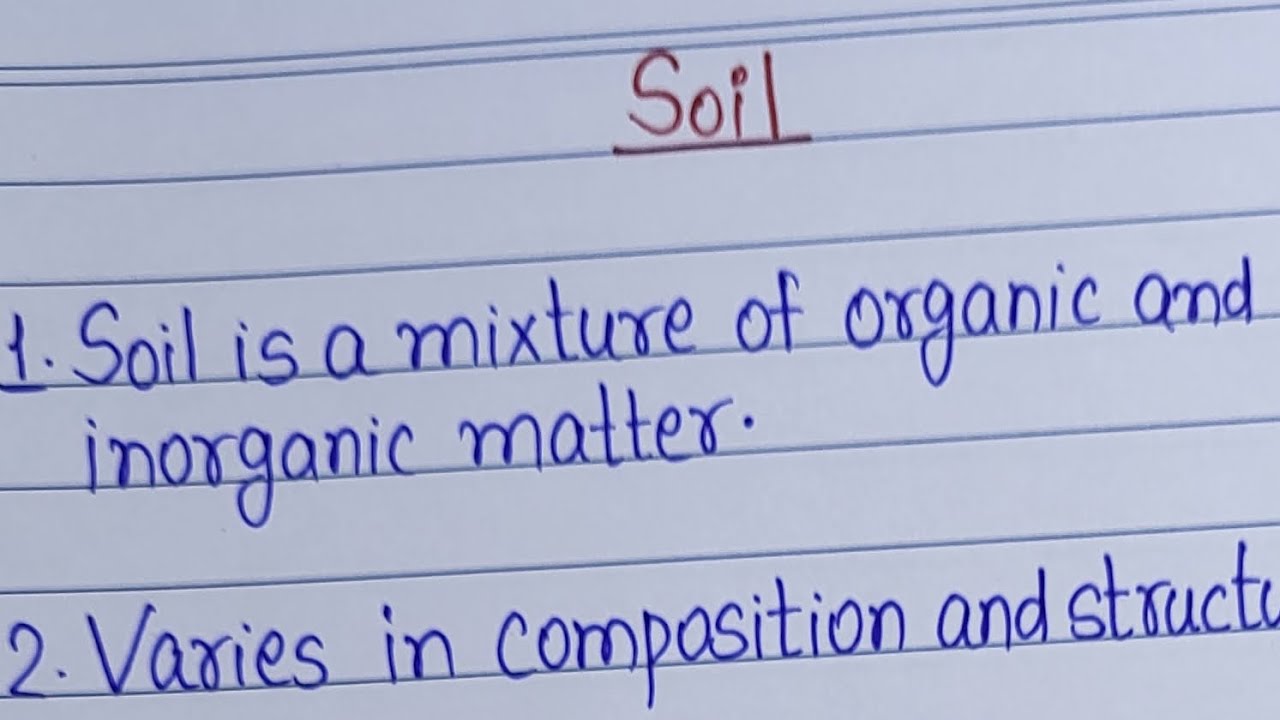 Soil
1. Soil is a mixture of organic and
inorganic matter.
2. Varies in composition and structu